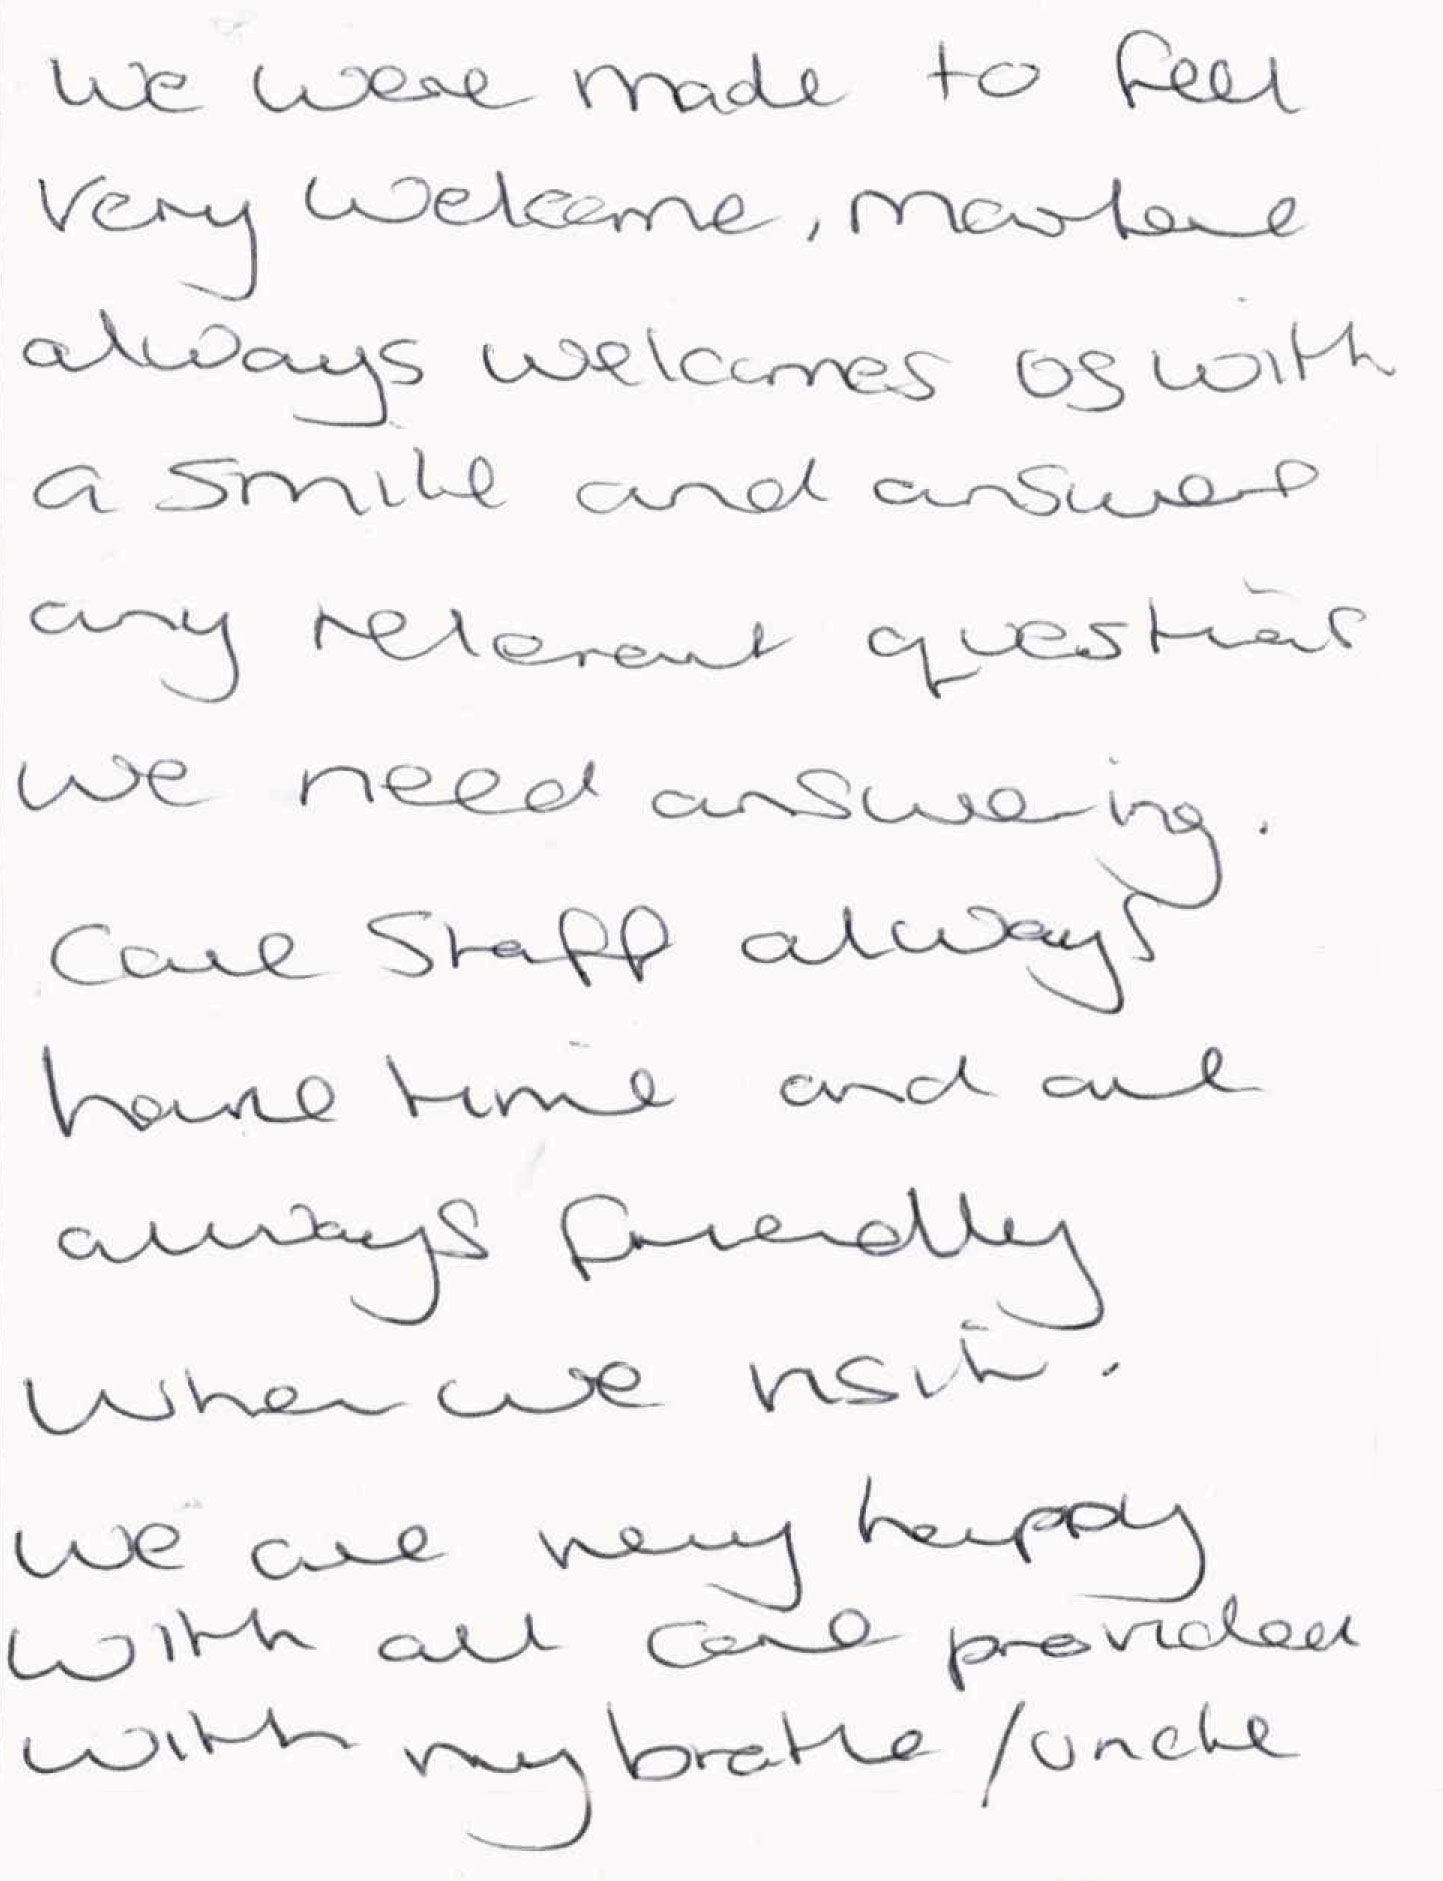 We were made to feel
very welcome, Marlene
always welcomes us with
a smile and answers
any relevant questions
we need answering.
Care Staff always
have time and are
always friendly
when we visit.
We are very happy
with all care provided
with my brother/uncle